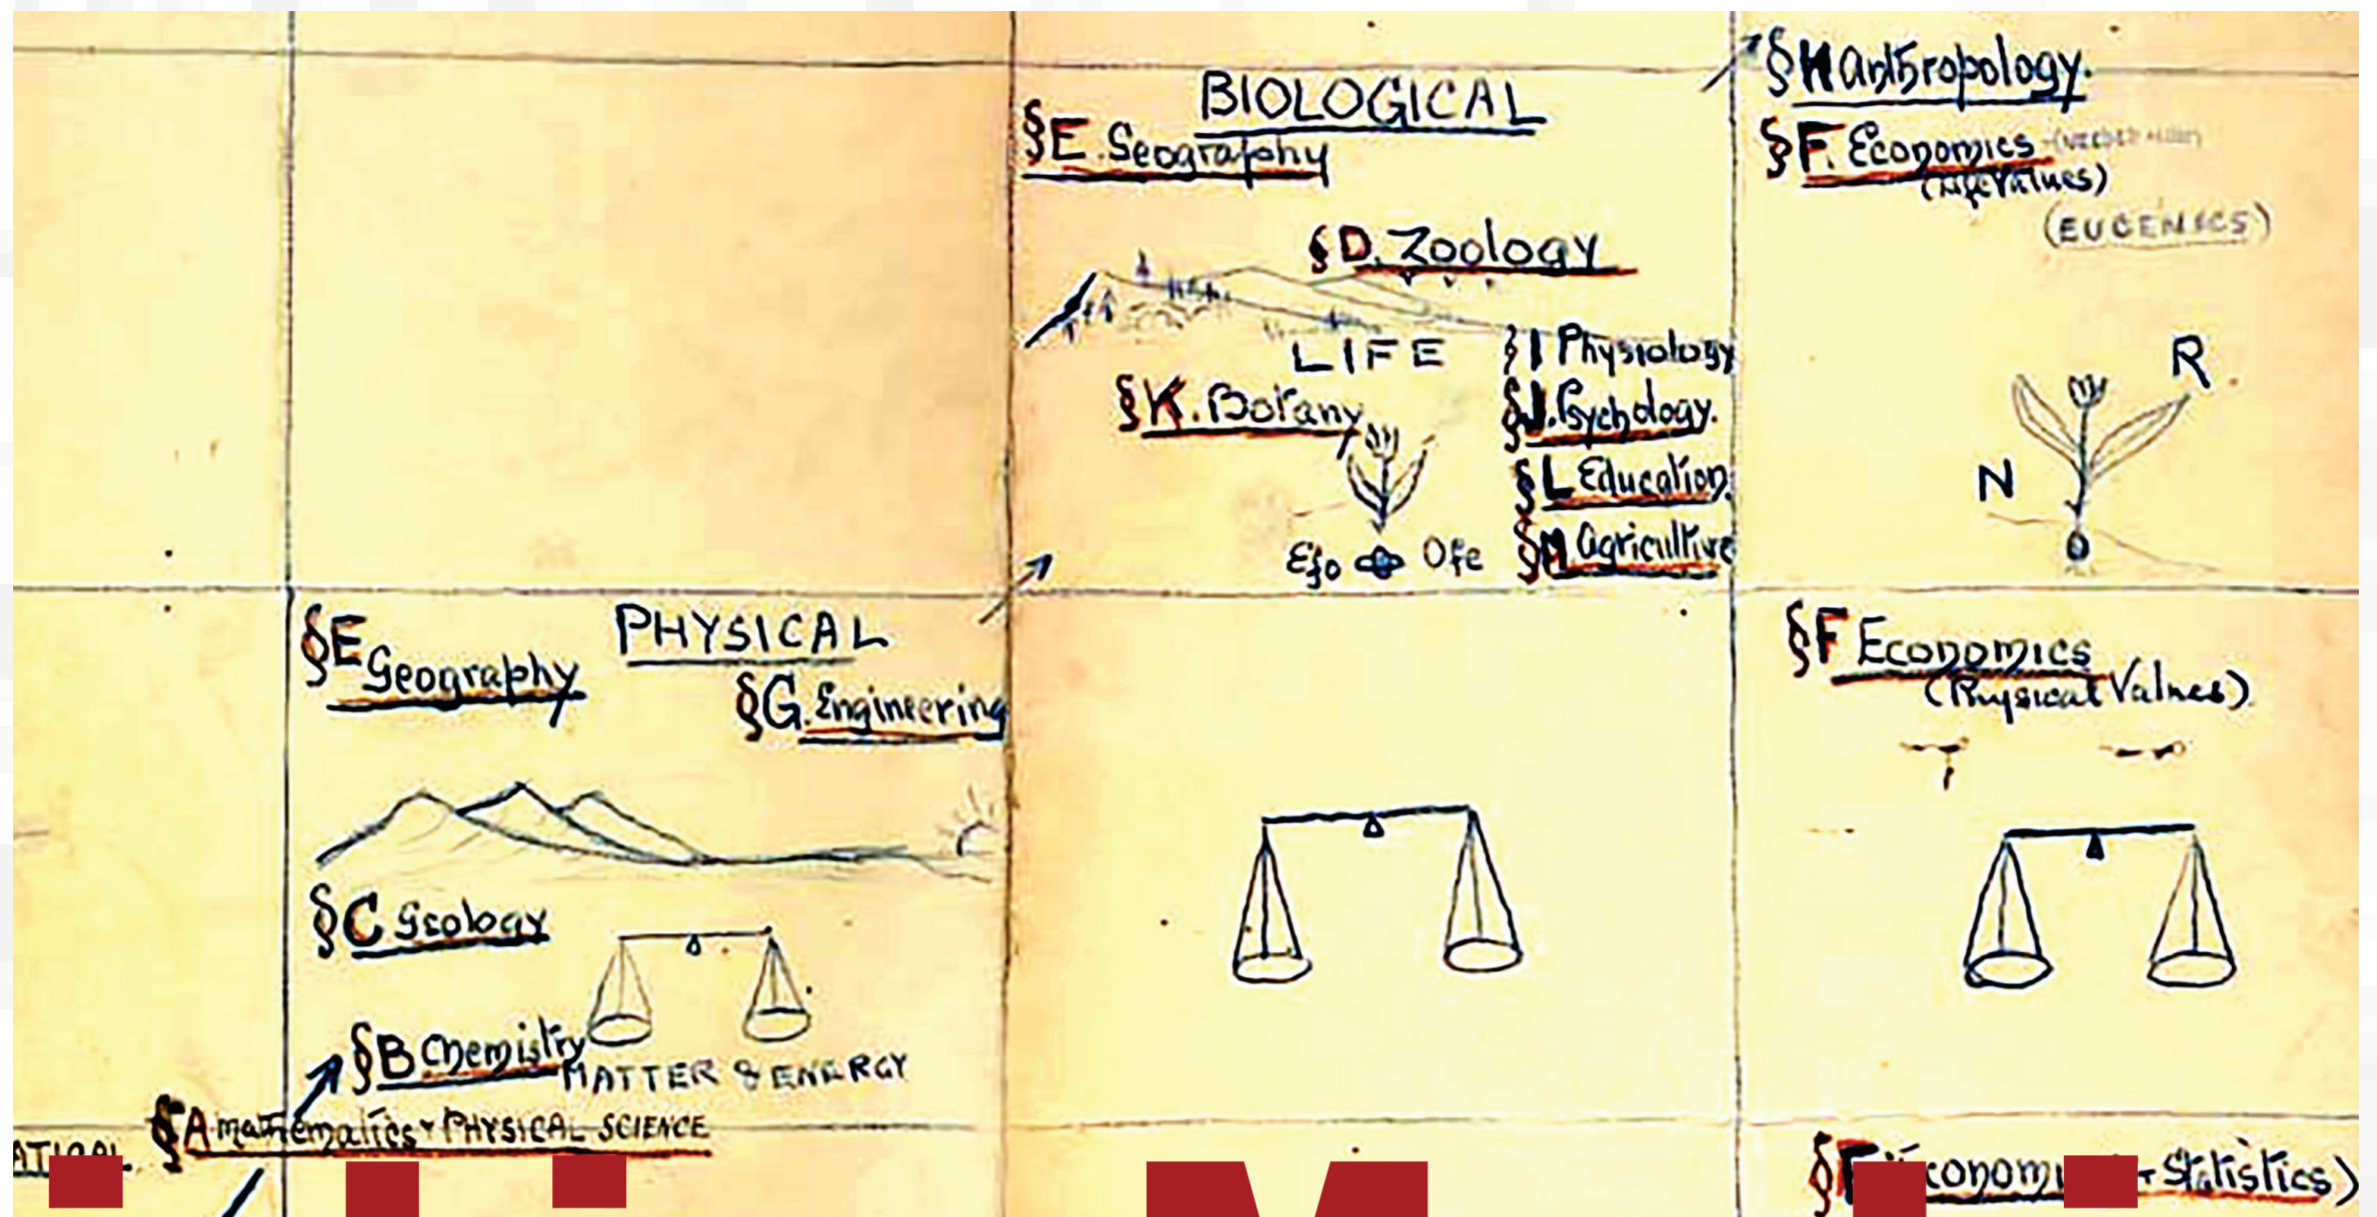 §H Anthropology.
BIOLOGICAL
§E. Geography
§F. Economics
(Life Values)
(EUGENICS)
§D. Zoology
LIFE
§I Physiology
§K. Botany
§J. Psychology.
§L Education
§M Agriculture
Efo Ofe
R
N
§E Geography
PHYSICAL
§G. Engineering
§F Economics
(Physical Values)
§C Geology
§B Chemistry
MATTER & ENERGY
§A Mathematics + PHYSICAL SCIENCE
Statistics)